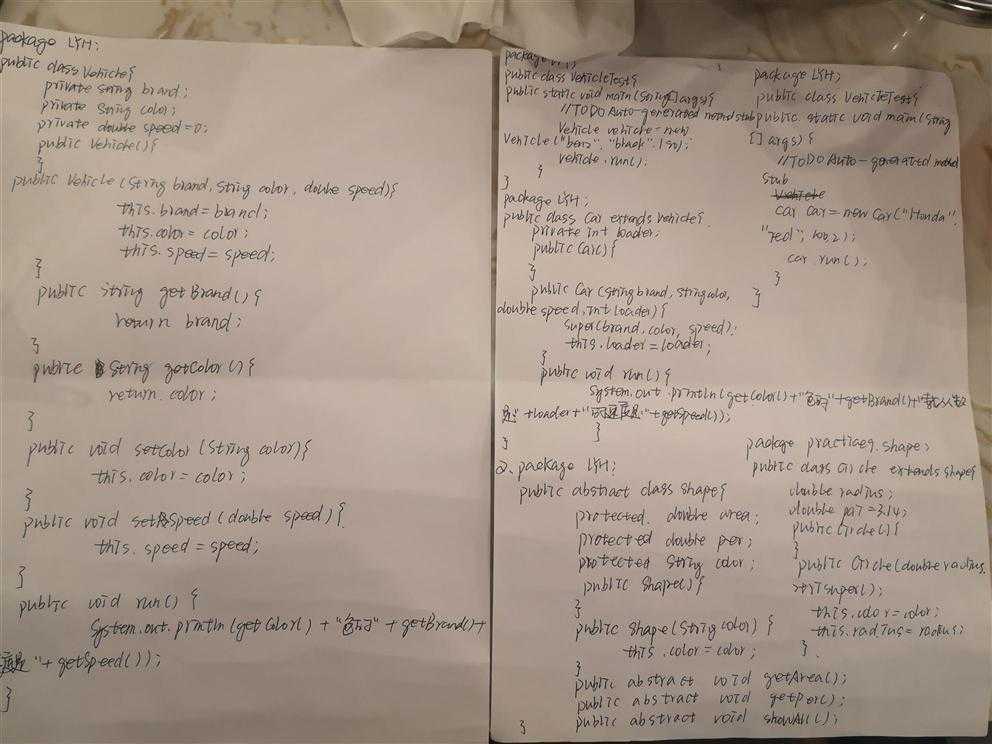 package LYH;
public class Vehicle{
private String brand;
private String color;
private double speed=0;
public Vehicle(){
}
public Vehicle(String brand, String color, double speed){
this.brand=brand;
this.color=color;
this.speed=speed;
}
public String getBrand(){
return brand;
}
public String getColor(){
return color;
}
public void setColor(String color){
this.color=color;
}
public void setSpeed(double speed){
this.speed=speed;
}
public void run(){
System.out.println(getColor()+"色的"+getBrand()+
度是"+getSpeed());
}
package
public class VehicleTest{
public static void main(String[]args){
//TODO Auto-generated method stub
Vehicle vehicle=new
Vehicle("benz","black",
vehicle.run();
}
}
package LYH;
public class Car extends Vehicle{
private int loader;
public Car(){
}
public Car(String brand, String color,
double speed, int loader){
super(brand, color, speed);
this.loader=loader;
}
public void run(){
System.out.println(getColor()+"色的"+getBrand()+
是"+loader+"的速度是"+getSpeed());
}
}
2. package LYH;
public abstract class Shape{
protected double area;
protected double per;
protected String color;
public Shape(){
}
public Shape(String color){
this.color=color;
}
public abstract void getArea();
public abstract void getPer();
public abstract void showAll();
}
package LYH;
public class VehicleTest{
public static void main(String
[]args){
//TODO Auto-generated method
stub
Vehicle
Car car=new Car("Honda",
"red",
car.run();
}
}
package practice9.shape;
public class Circle extends Shape{
double radius;
double pai=3.14;
public Circle(){
}
public Circle(double radius,
super();
this.color=color;
this.radius=radius;
}